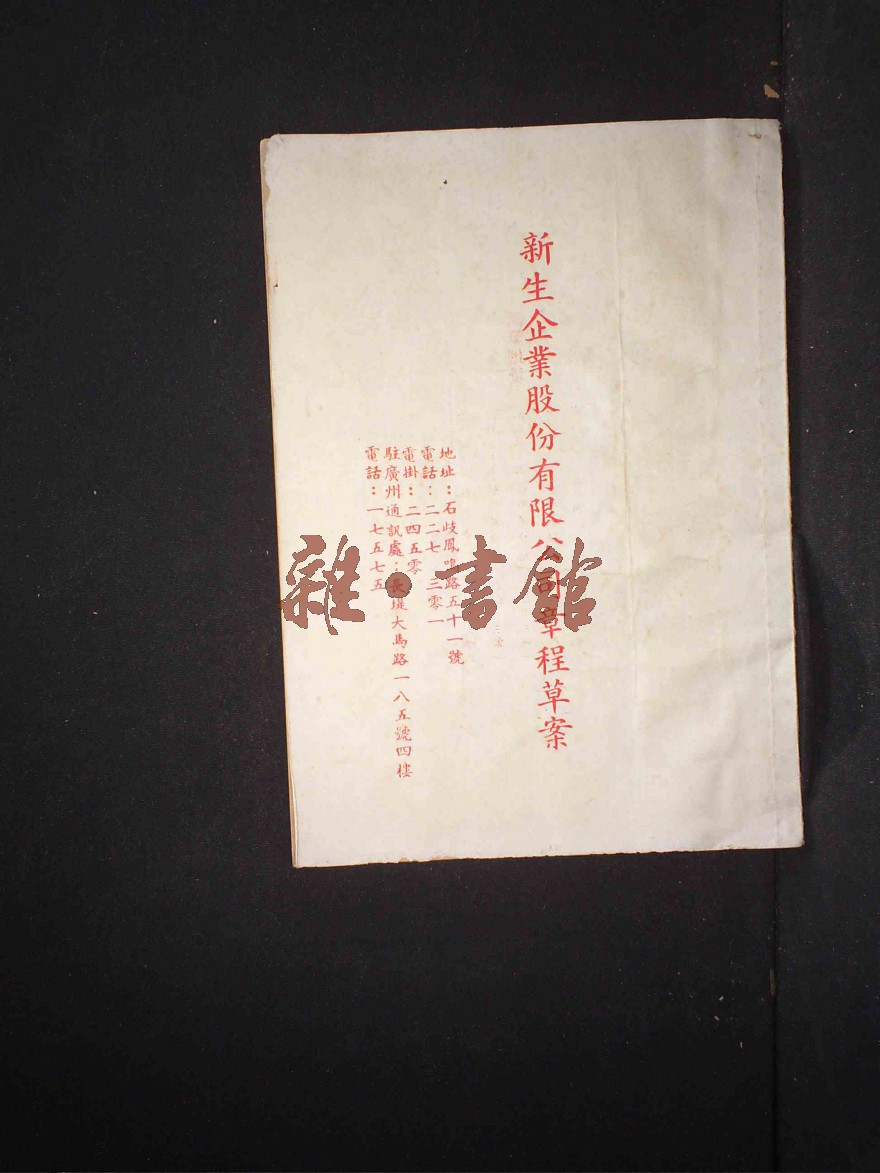 新生企業股份有限公司章程草案
地址：石歧鳳鳴路五十一號
電話：二二七 三零一
電掛：二四五零
駐廣州通訊處：長堤大馬路一八五號四樓
電話：一七五七五
雜·書館